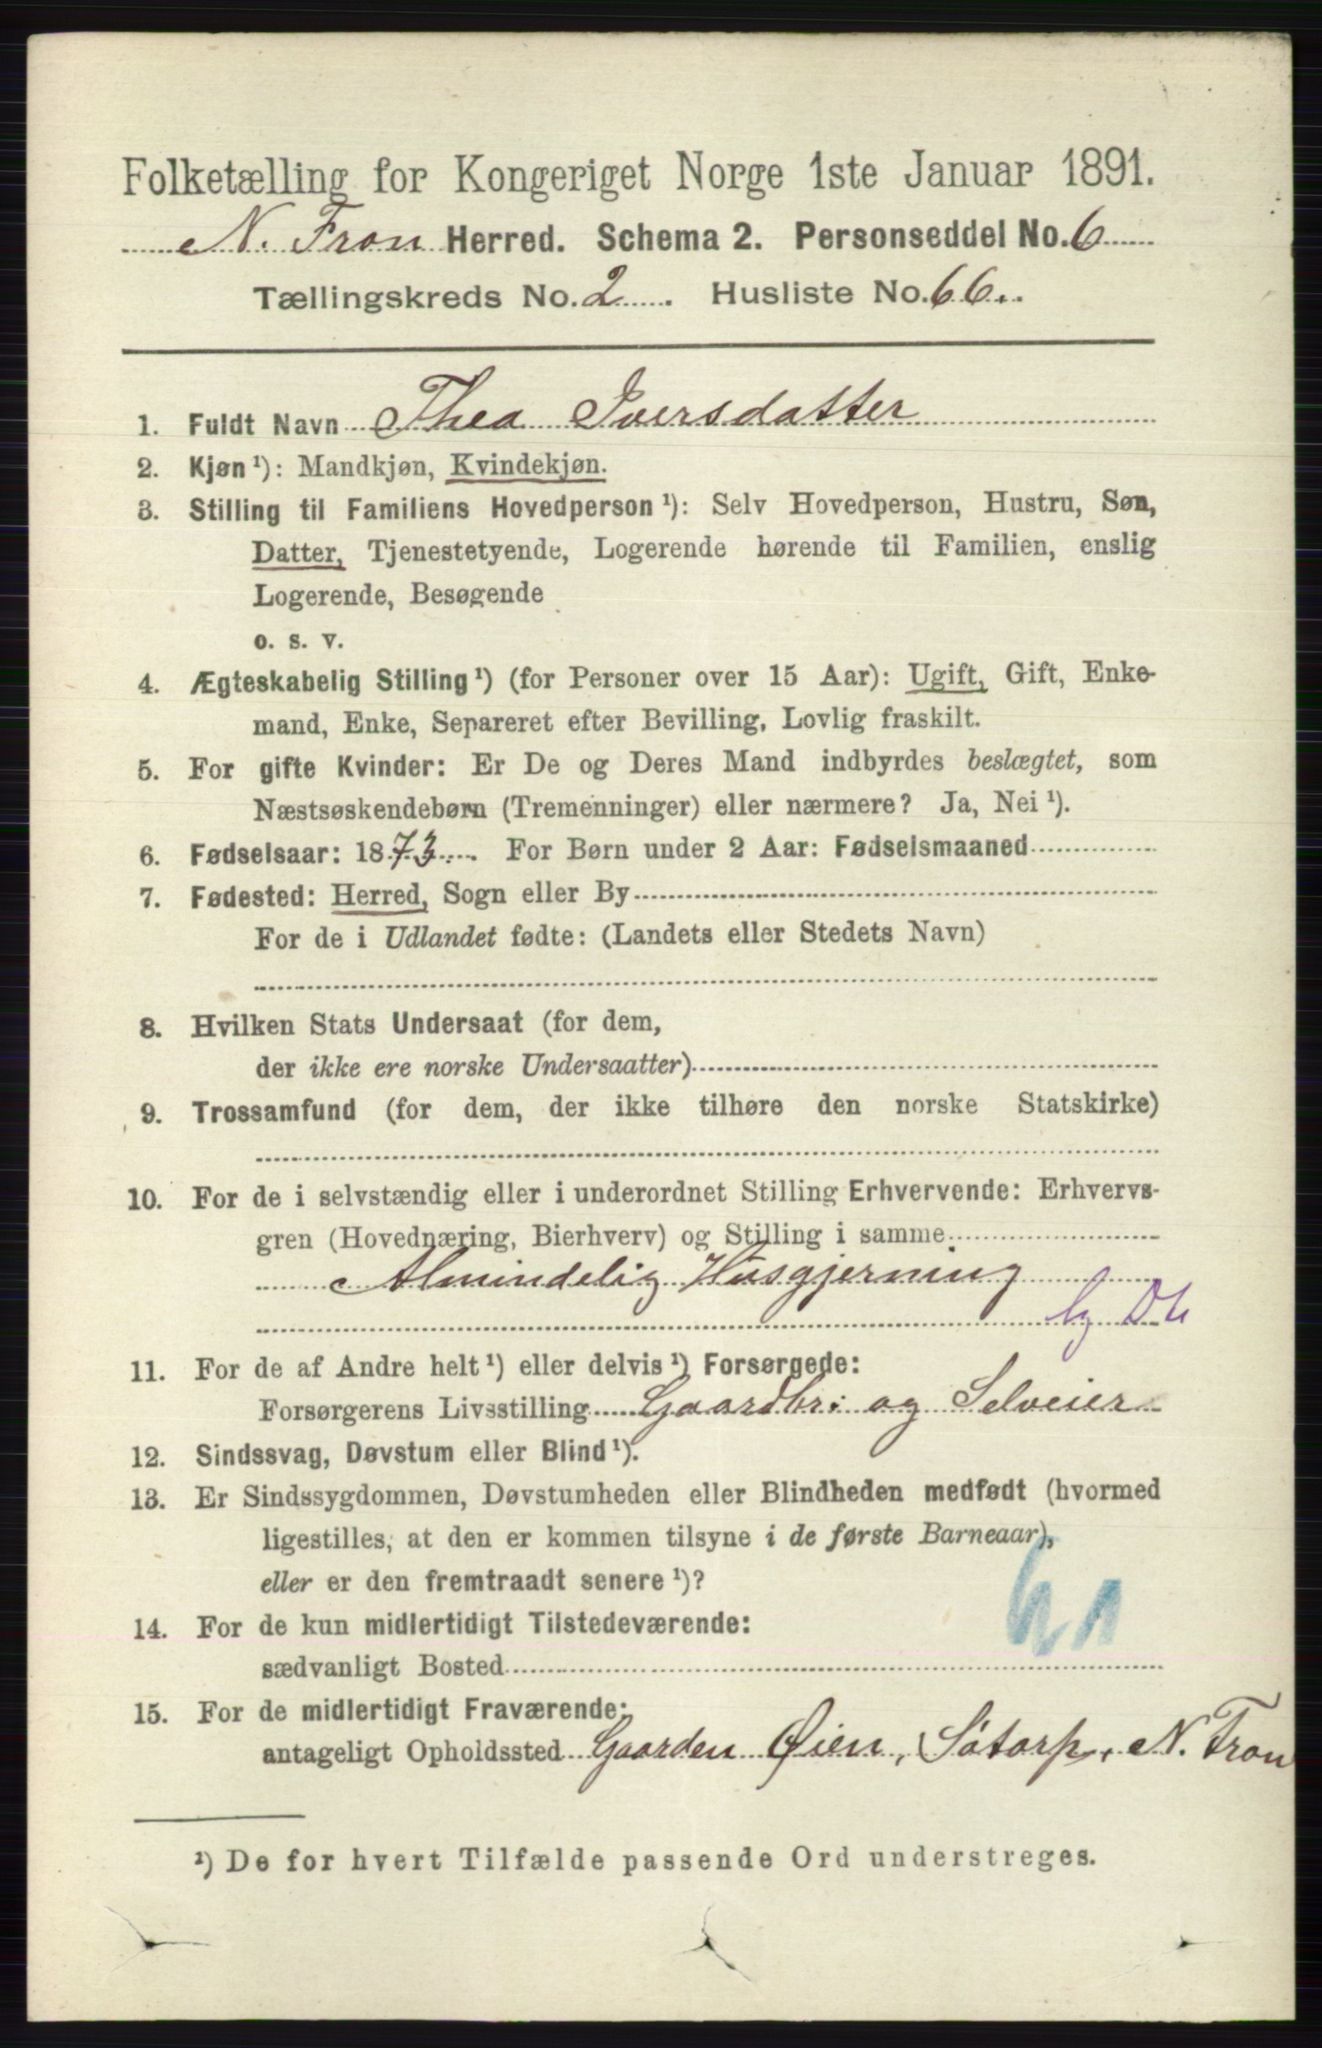 Folketælling for Kongeriget Norge 1ste Januar 1891.
N. Fron Herred. Schema 2. Personseddel No. 6
Tællingskreds No. 2. Husliste No. 66.
1. Fuldt Navn Thea Iversdatter
2. Kjøn ¹): Mandkjøn, Kvindekjøn.
3. Stilling til Familiens Hovedperson ¹): Selv Hovedperson, Hustru, Søn,
Datter, Tjenestetyende, Logerende hørende til Familien, enslig
Logerende, Besøgende
o. s. v.
4. Ægteskabelig Stilling ¹) (for Personer over 15 Aar): Ugift, Gift, Enke-
mand, Enke, Separeret efter Bevilling, Lovlig fraskilt.
5. For gifte Kvinder: Er De og Deres Mand indbyrdes beslægtet, som
Næstsøskendebørn (Tremenninger) eller nærmere? Ja, Nei ¹).
6. Fødselsaar: 1873. For Børn under 2 Aar: Fødselsmaaned
7. Fødested: Herred, Sogn eller By
For de i Udlandet fødte: (Landets eller Stedets Navn)
8. Hvilken Stats Undersaat (for dem,
der ikke ere norske Undersaatter)
9. Trossamfund (for dem, der ikke tilhøre den norske Statskirke)
10. For de i selvstændig eller i underordnet Stilling Erhvervende: Erhvervs-
gren (Hovednæring, Bierhverv) og Stilling i samme
Almindelig Husgjerning
11. For de af Andre helt ¹) eller delvis ¹) Forsørgede:
Forsørgerens Livsstilling Gaardbr: og Selveier
12. Sindssvag, Døvstum eller Blind ¹).
13. Er Sindssygdommen, Døvstumheden eller Blindheden medfødt (hvormed
ligestilles, at den er kommen tilsyne i de første Barneaar),
eller er den fremtraadt senere ¹)?
14. For de kun midlertidigt Tilstedeværende:
sædvanligt Bosted
15. For de midlertidigt Fraværende:
antageligt Opholdssted Gaarden Øien, Sötorp, N. Fron
¹) De for hvert Tilfælde passende Ord understreges.